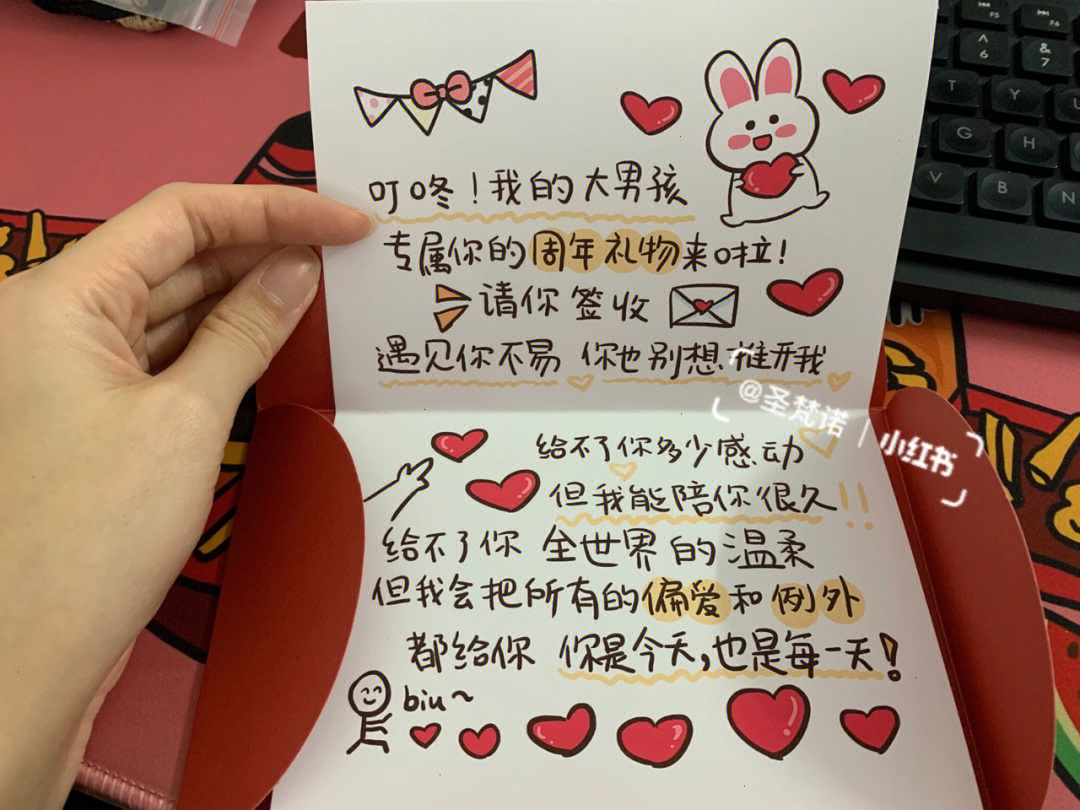 叮咚！我的大男孩
专属你的周年礼物来啦！
请你签收
遇见你不易 你也别想推开我
给不了你多少感动
但我能陪你很久!!
给不了你 全世界的温柔
但我会把所有的偏爱和例外
都给你 你是今天,也是每一天!
biu~
@圣梵诺 | 小红书
F5
F6
^
6
&
7
T
Y
G
H
V
B
N